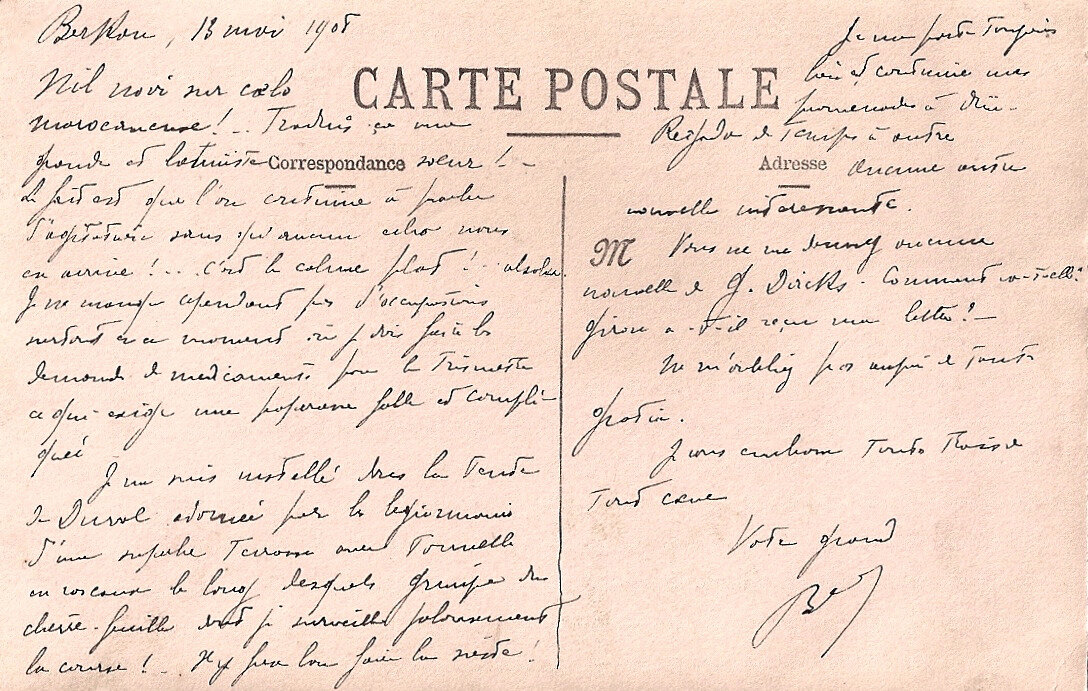 Berkan, 13 mai 1908
Nil novi sur cœlo
marocanense! - Traduis ça ma
grande et latiniste sœur! -
Le fait est que l'on continue à parler
d'agitation sans qu'aucun écho nous
en arrive!.. c'est le calme plat! absolu.
Je ne manque cependant pas d'occupations
surtout en ce moment où je dois faire les
demandes de médicaments pour le trimestre
ce qui exige une paperasse folle et compli-
quée
Je me suis installé dans la tente
de Duval adornée par les légionnaires
d'une superbe terrasse avec tonnelle
en roseaux le long desquels grimpe du
chèvre-feuille dont je surveille jalousement
la course! - Il y fera bon faire la sieste!
CARTE POSTALE
Correspondance
Adresse
M
Je me porte toujours
bien et continue mes
promenades à
Regada de temps à autre
aucune autre
nouvelle intéressante.
Vous ne me donnez aucune
nouvelle de G. Dircks. Comment va-t-elle?
Girou a-t-il reçu ma lettre? -
Ne m'oubliez pas auprès de tante
Je vous embrasse toutes trois de
tout cœur
Votre grand